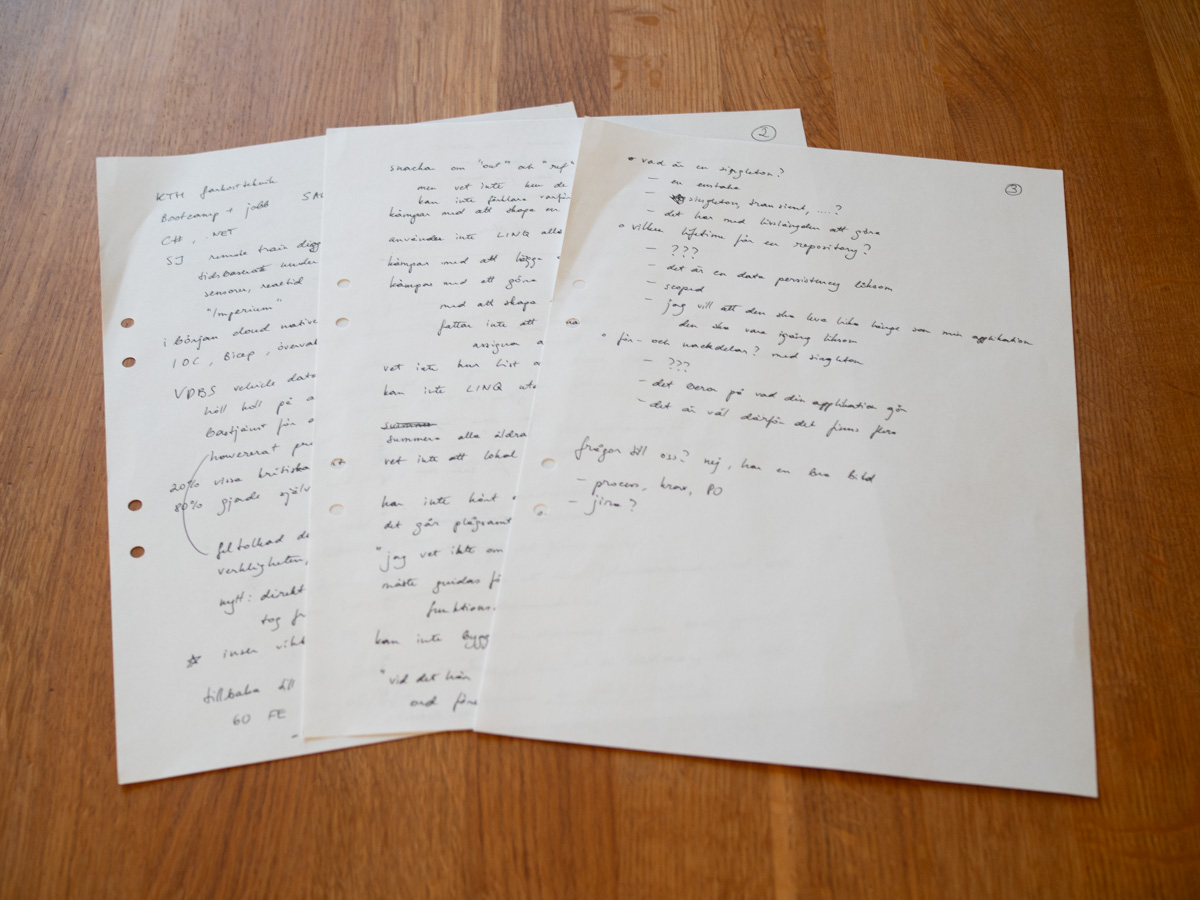 KTH farkostteknik
Bootcamp + jobb
C#, .NET
SJ remote train
tidsbaserat
sensorer, realtid
"Imperium"
i början cloud native
IOC, Bicep,
VDBS vehicle data
höll koll på
Bastjänst för
howererat
20% vissa kritiska
80% gjorde själv
filtolkad
verkligheten,
nytt: direkt
tog
inser
tillbaka till
60 FE
2
snacka om "out" och "ref"
men vet inte hur de
kan inte förklara varför
kämpar med att skapa en
använder inte LINQ alls
kämpar med att lägga
kämpar med att göra
med att skapa
fattar inte att
assigna
vet inte hur list
kan inte LINQ
summera alla åldra
vet inte att lokal
har inte hört
det går plågsamt
"jag vet inte om
måste guidas
funktions
kan inte bygg
"vid det här
ord före
3
vad är en singleton?
- en enstaka
- singleton, transient, ....?
- det har med livslängden att göra
vilken lifetime för en repository?
- ???
- det är en data persistency liksom
- scoped
- jag vill att den ska leva lika länge som min applikation
den ska vara igång liksom
för- och nackdelar? med singleton
- ???
- det beror på vad din applikation gör
- det är väl därför det finns flera
frågor till oss? nej, har en bra bild
- process, krav, PO
- jira?